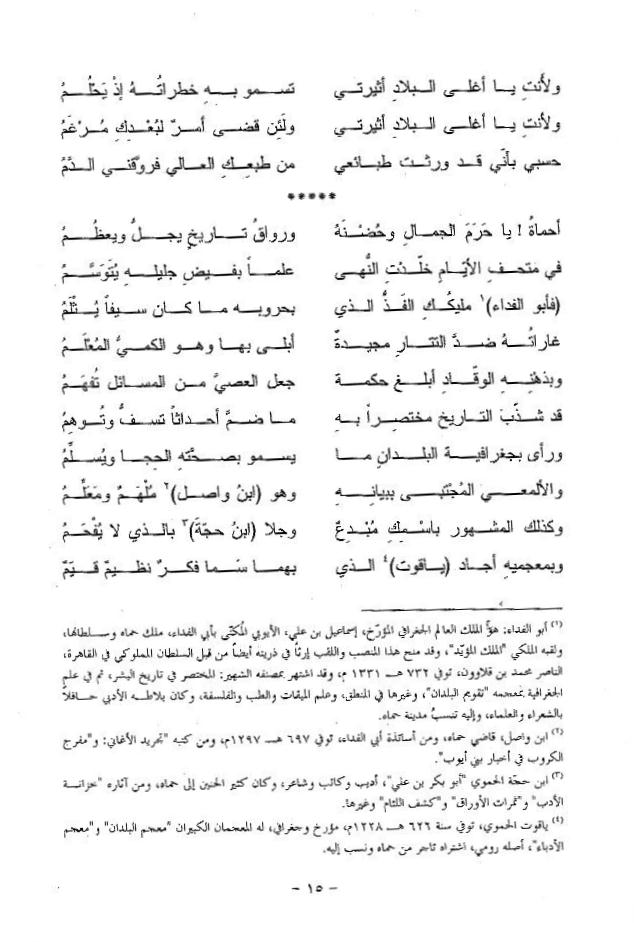 ولأنتِ يــا أغلــى الــبلادِ أثيرتــي تســمو بــهِ خطراتُــهُ إذْ يَحْلُــمُ
ولأنتِ يــا أغلــى الــبلادِ أثيرتــي ولَئِن قضــى أمــرٌ لبُعْــدِكِ مُــرْغَمُ
حسبي بأنّي قــد ورثــت طبــائعي من طبعــكِ العــالي فروقنــي الــدّمُ
*****
أحماةُ ! يا حَرَمَ الجمــالِ وحُضْــنَهُ ورواقُ تــاريخٍ يجــلُّ ويعظُــمُ
في متحــفِ الأيّــامِ خلّــدتِ النُّهــى علمــاً بفــيضِ جليلــهِ يُتَوَسَّــمُ
(فأبو الفداء)١ مليكُــكِ الفَــذُّ الــذي بحروبــهِ مــا كــان ســيفاً يُــثْلَمُ
غاراتُــهُ ضــدَّ التتــارِ مجيــدةٌ أبلــى بهــا وهــو الكمــيُّ المُعْلَــمُ
وبذهنِــهِ الوقّــادِ أبلــغ حكمــة جعل العصيَّ مــن المســائل تُفهَــمُ
قد شذّبَ التــاريخ مختصــراً بــهِ مــا ضــمَّ أحــداثاً تســفُّ وتُــوهِمُ
ورأى بجغرافيــة البلــدانِ مــا يســمو بصــحّتهِ الحِجــا ويُســلِّمُ
والألمعــي المُجْتبــى ببيانِــهِ وهو (ابنُ واصــل)٢ مُلْهَــمٌ ومَعَلِّــمُ
وكذلك المشــهور باســمِكِ مُبْــدِعٌ وجلا (ابنُ حجّةَ)٣ بالــذي لا يُفْحَــمُ
وبمعجميهِ أجــاد (يــاقوت)٤ الــذي بهمــا سَــما فكــرٌ نظــيمٌ قــيّمُ
(١) أبو الفداء: هوَ الملك العالم الجغرافي المؤرّخ، إسماعيل بن علي، الأيوبي المُكنّى بأبي الفداء، ملك حماه وســلطانها،
ولقبه الملكي "الملك المؤيّد"، وقد منح هذا المنصب واللقب إرثاً في ذريته أيضاً من قبل السلطان المملوكي في القاهرة،
الناصر محمد بن قلاوون، توفي ٧٣٢ هــ ١٣٣١ م، وقد اشتهر بمصنفه الشهير: المختصر في تاريخ البشر، ثم في علم
الجغرافية بمعجمه "تقويم البلدان"، وغيرها في المنطق، وعلم الميقات والطب والفلسفة، وكان بلاطه الأدبي حــافلاً
بالشعراء والعلماء، وإليه تنسبُ مدينة حماه.
(٢) ابن واصل، قاضي حماه، ومن أساتذة أبي الفداء، توفي ٦٩٧ هــ ١٢٩٧م، ومن كتبه "تجريد الأغاني: و"مفرج
الكروب في أخبار بني أيوب".
(٣) ابن حجّة الحموي "أبو بكر بن علي"، أديب وكاتب وشاعر، وكان كثير الحنين إلى حماه، ومن آثاره "خزانــة
الأدب" و"ثمرات الأوراق" و"كشف اللثام" وغيرها.
(٤) ياقوت الحموي، توفي سنة ٦٢٦ هــ ١٢٢٨م، مؤرخ وجغرافي، له المعجمان الكبيران "معجم البلدان" و"معجم
الأدباء"، أصله رومي، اشتراه تاجر من حماه ونسب إليه.
- ١٥ -